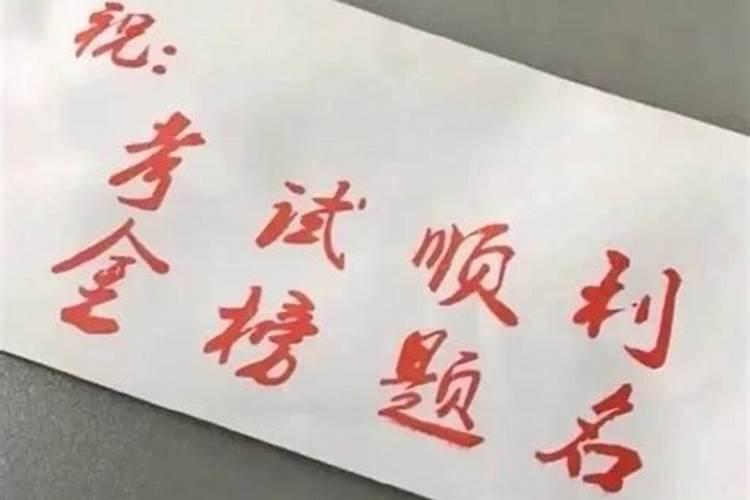 祝:
考试顺利
金榜题名